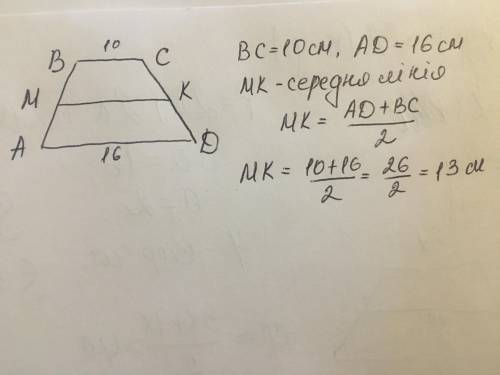 10
B C
M K
A D
16
BC=10см, AD=16см
MK-середня лінія
MK = AD+BC / 2
MK = 10+16 / 2 = 26 / 2 = 13 см